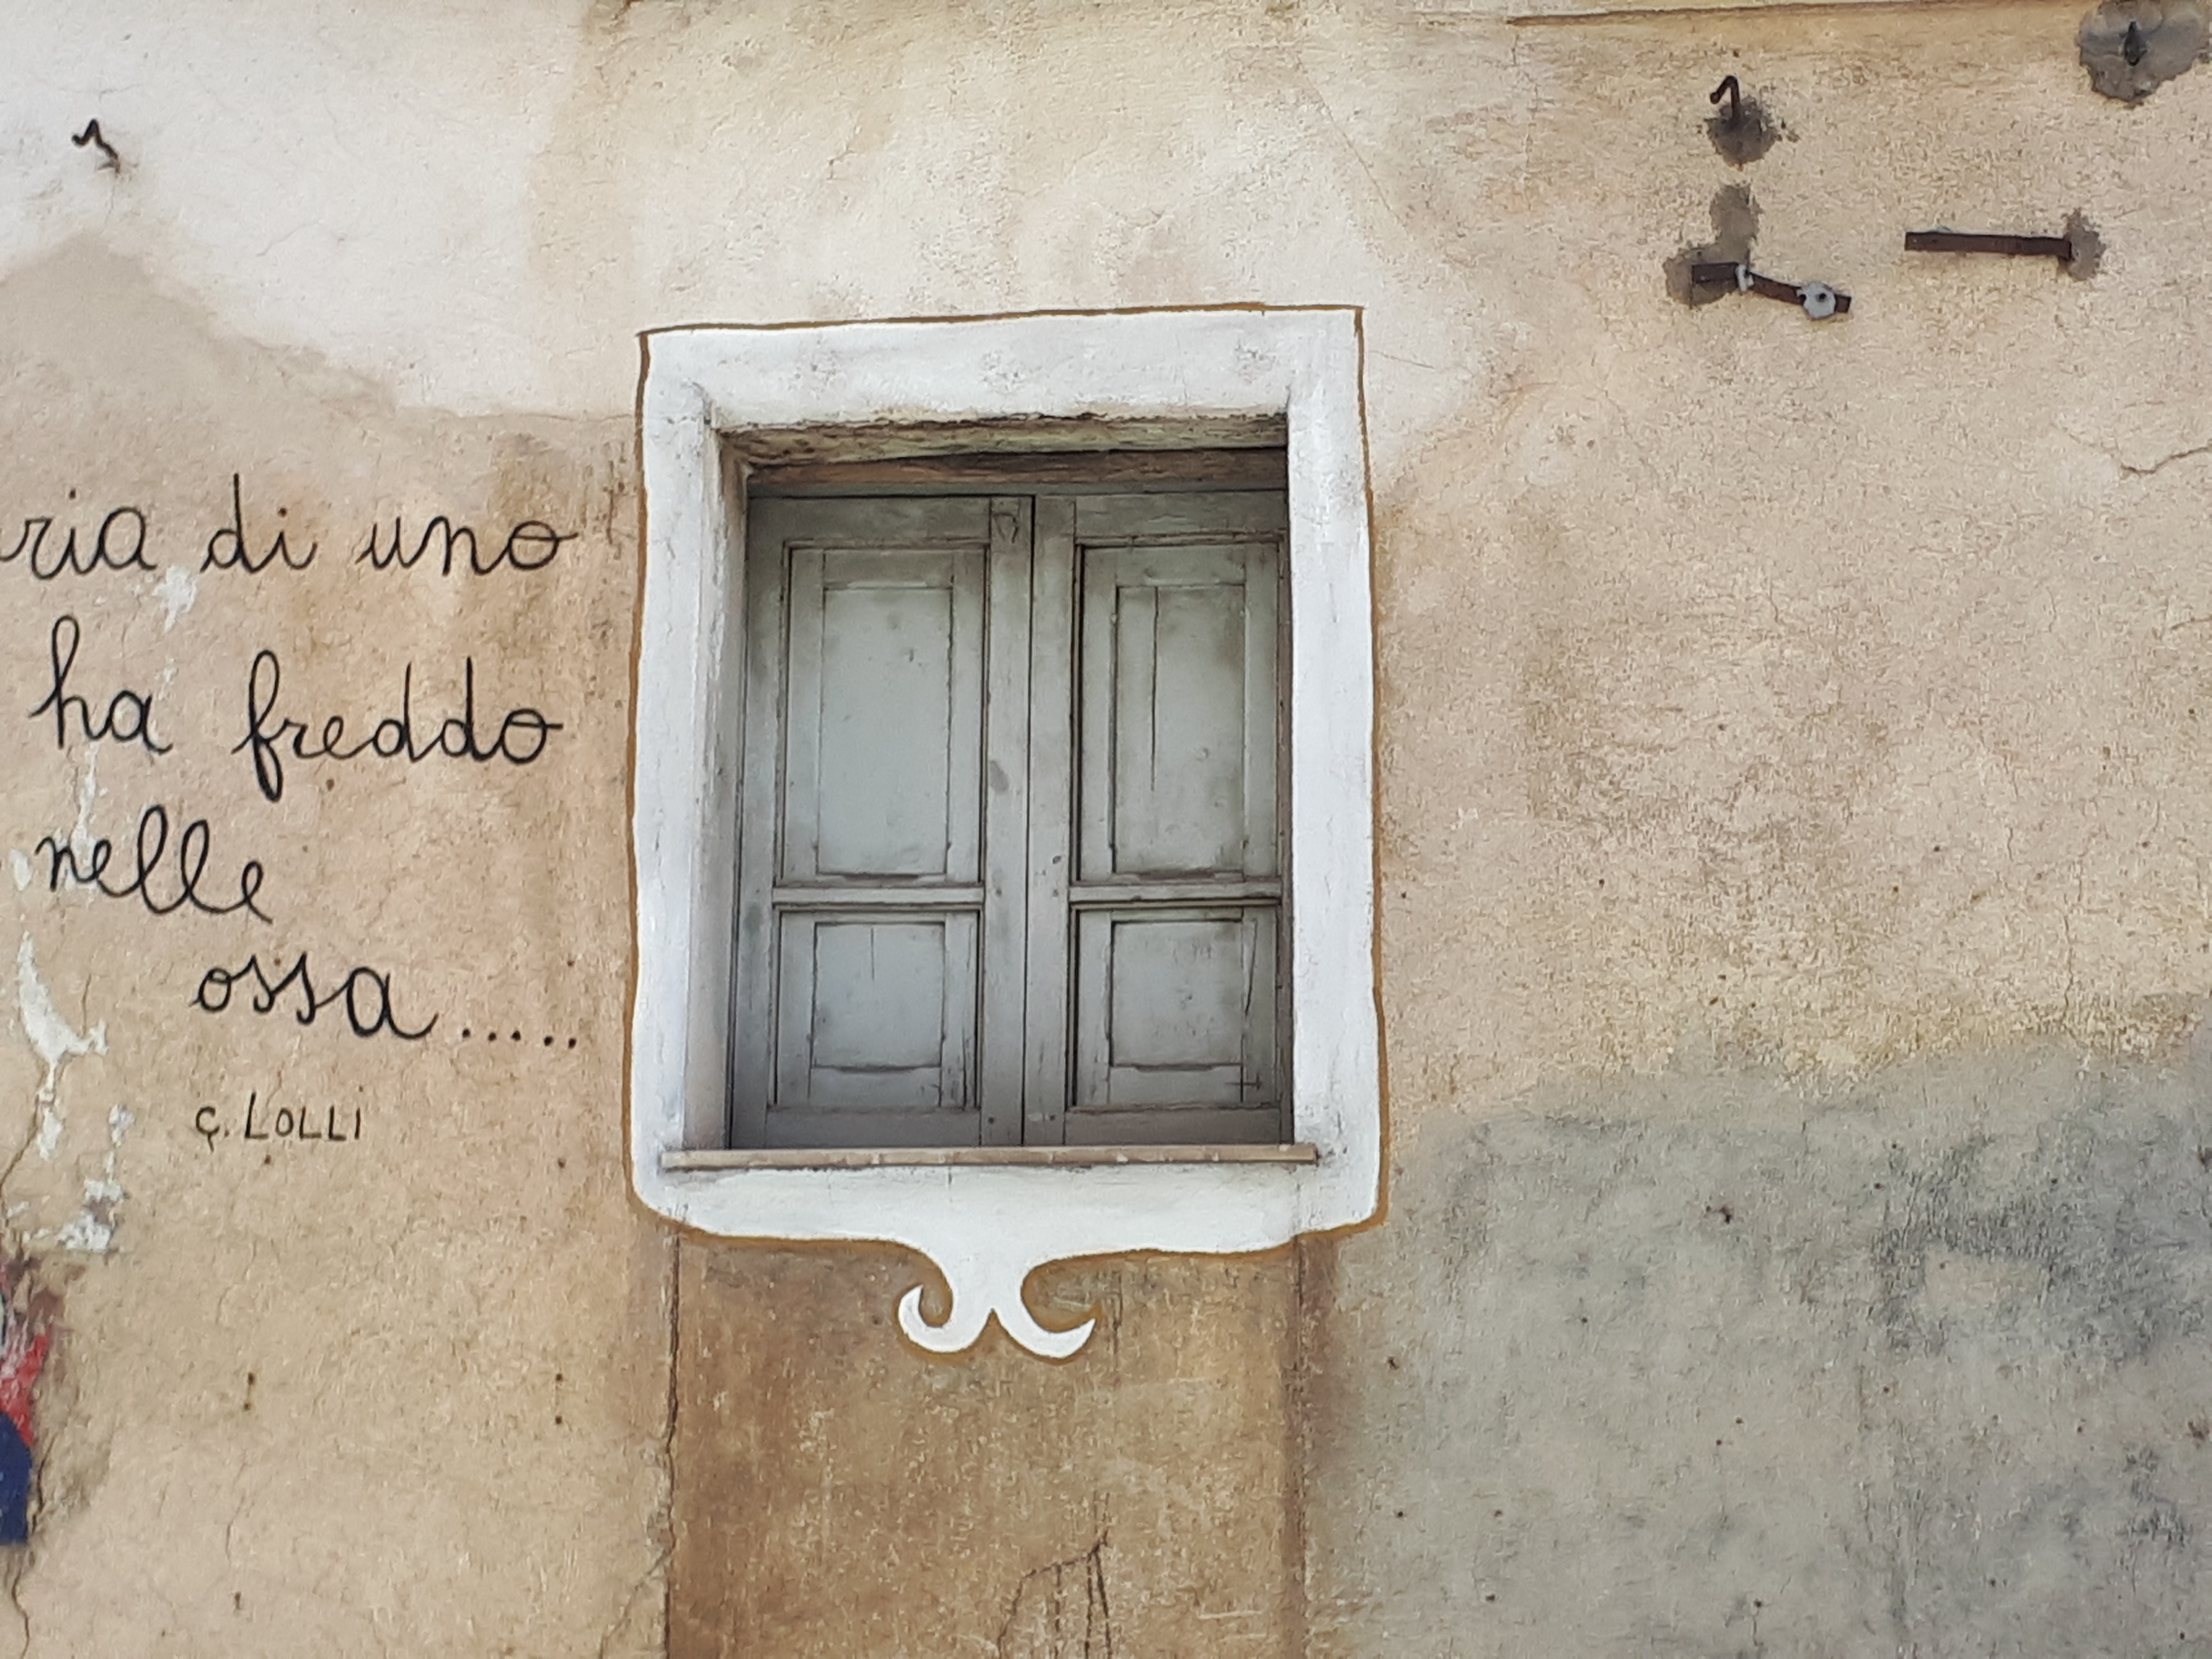 ria di uno
ha freddo
nelle
ossa.....
C. LOLLI